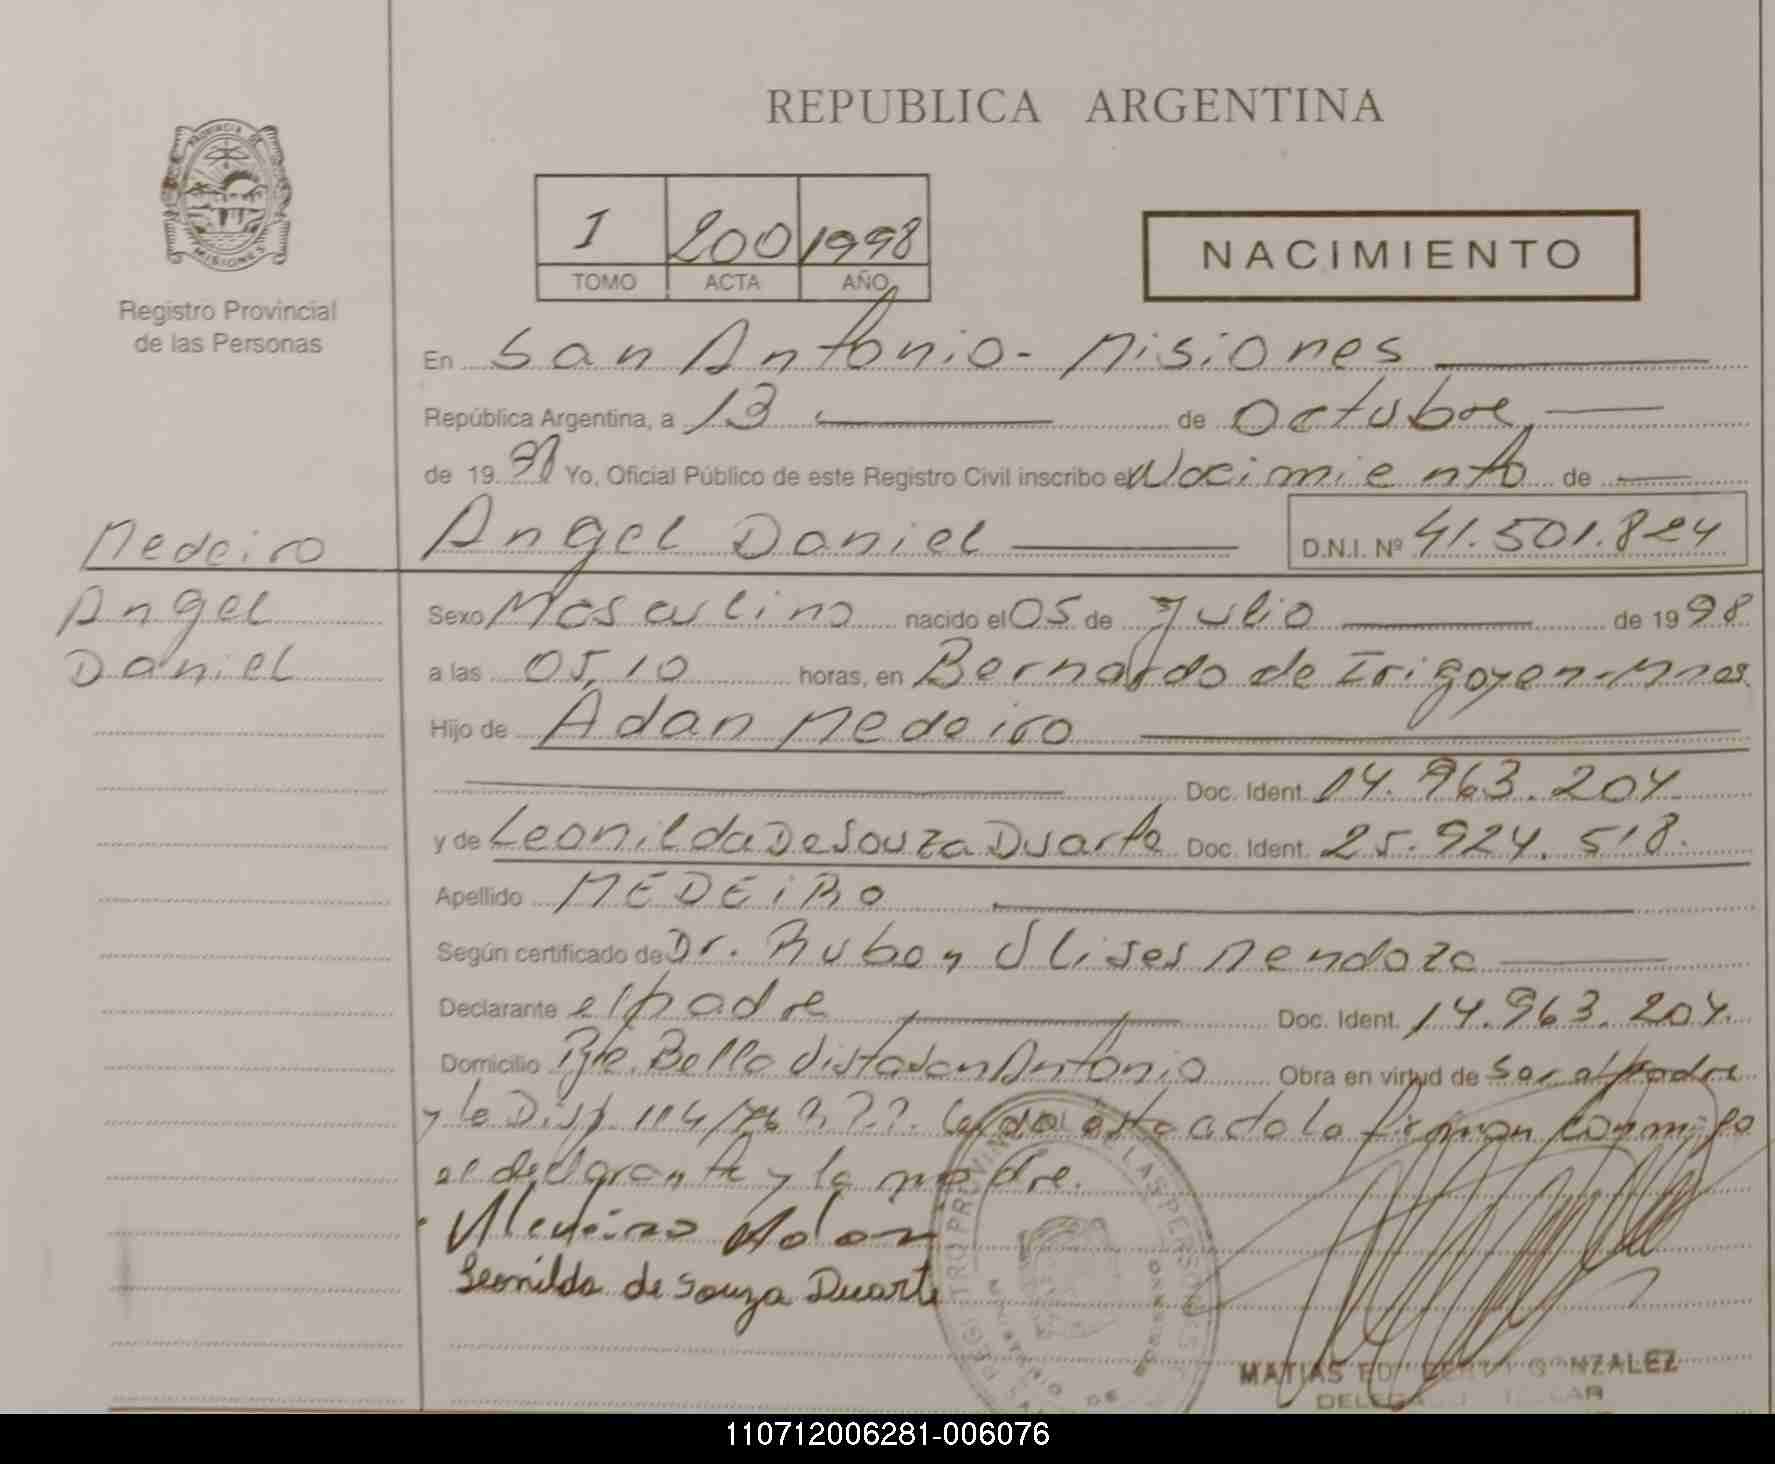 REPUBLICA ARGENTINA
PROVINCIA DE
MISIONES
Registro Provincial
de las Personas
I 200 1998
TOMO ACTA AÑO
NACIMIENTO
En San Antonio - Misiones
República Argentina, a 13 de Octubre,
de 19 98 Yo, Oficial Público de este Registro Civil inscribo el Nacimiento de
Medeiro
Angel Daniel
D.N.I. Nº 41.501.824
Angel
Daniel
Sexo Masculino nacido el 05 de Julio de 19 98
a las 05,10 horas, en Bernardo de Irigoyen-Mnes.
Hijo de Adan Medeiro
Doc. Ident. 14.963.204.
y de Leonilda De Souza Duarte Doc. Ident. 25.924.518.
Apellido MEDEIRO
Según certificado de Dr. Ruben Ulises Mendoza
Declarante el padre Doc. Ident. 14.963.204.
Domicilio Pje. Bella Vista San Antonio Obra en virtud de ser el padre
y la Disp. 114/76 Leida esta acta la firman conmigo
el declarante y la madre.
Medeiro Adan
Leonilda de Souza Duarte
MATIAS GONZALEZ
110712006281-006076